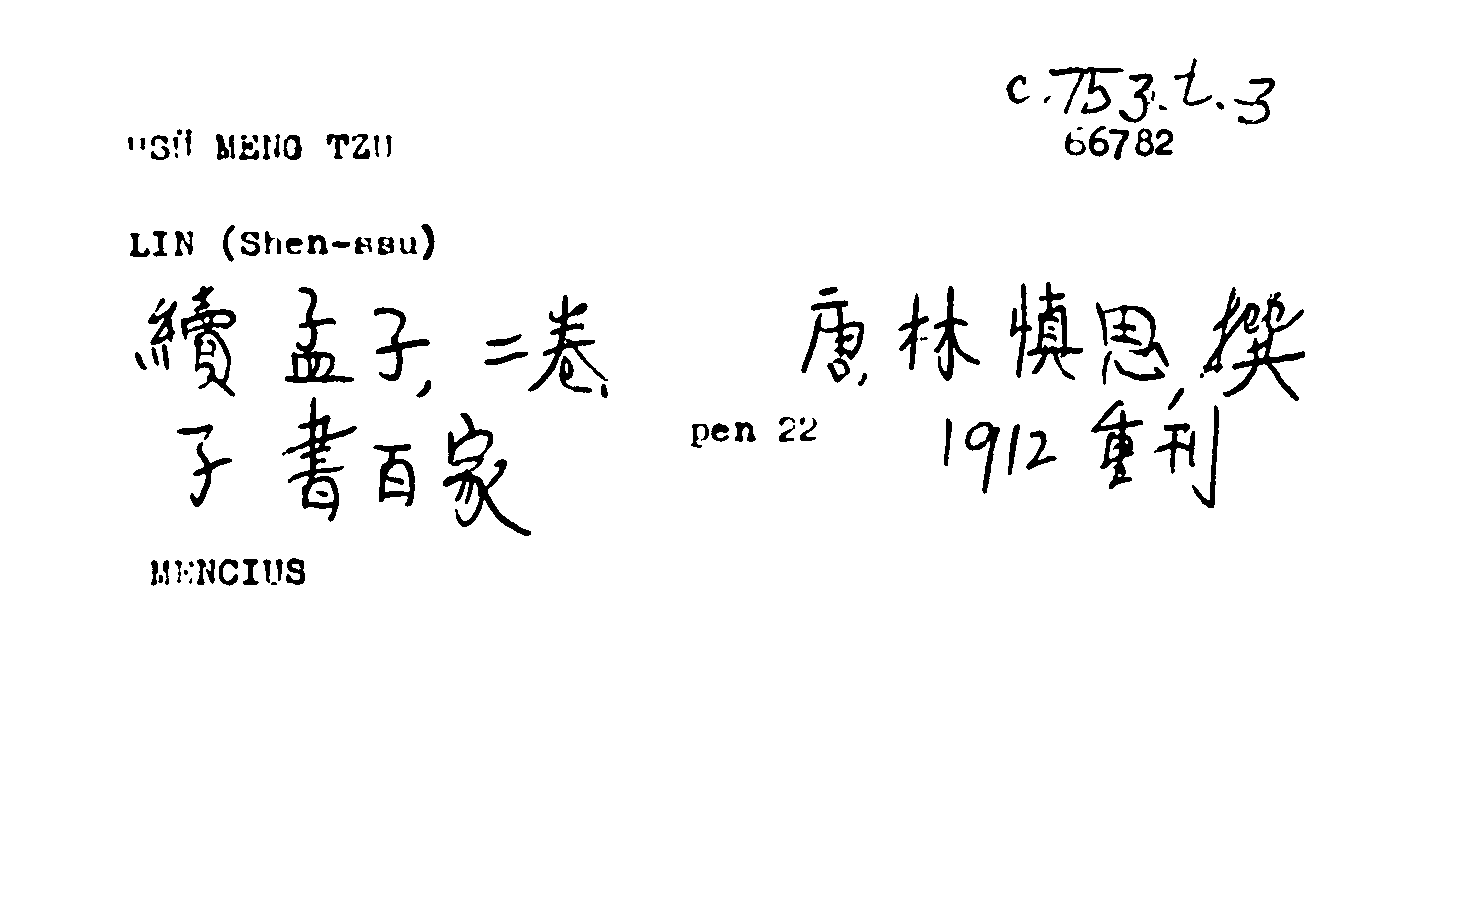 c.753.t.3
66782
HSÜ MENG TZU
LIN (Shen-ssu)
續孟子, 二卷. 唐, 林慎思, 撰
子書百家 pen 22 1912 重刊
MENCIUS